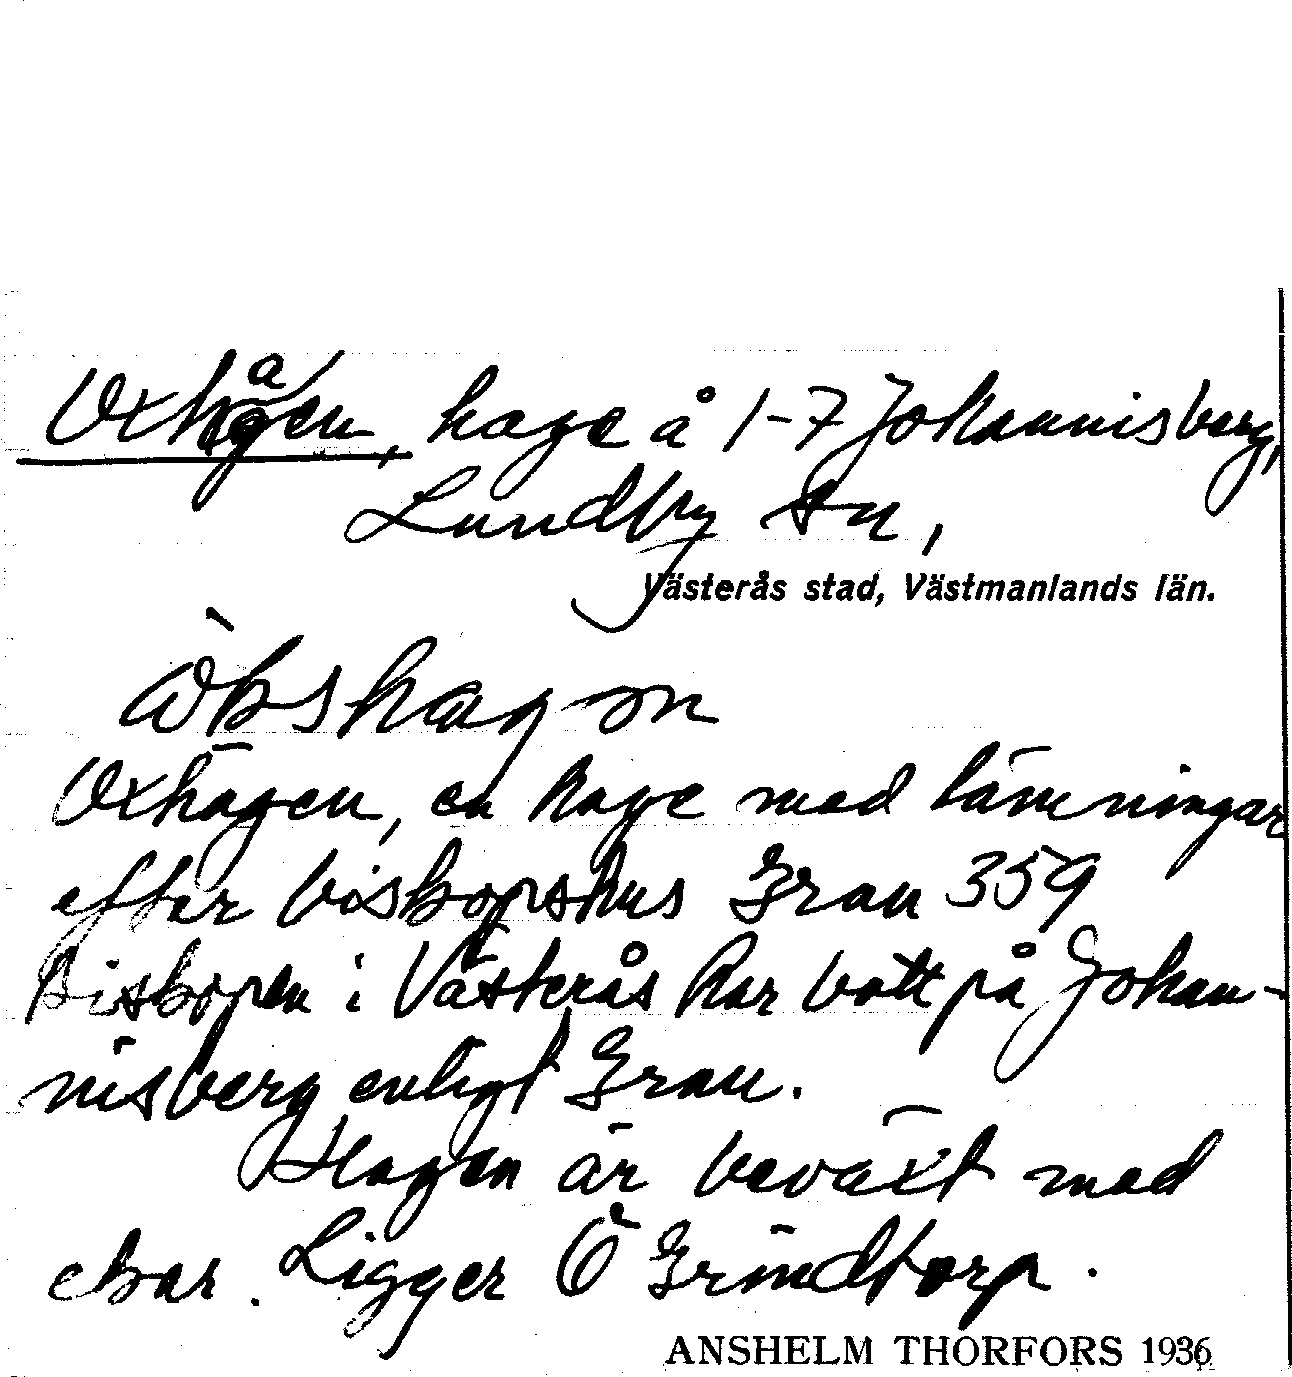 Oxhagen, hage å 1-7 Johannisberg,
Lundby sn,
Västerås stad, Västmanlands län.
Oxhagen, en hage med lämningar
efter biskopshus Grau 359
Biskopen i Västerås har bott på Johan-
nisberg enligt Grau.
Hagen är beväxt med
ekar. Ligger Ö Grindtorp.
ANSHELM THORFORS 1936